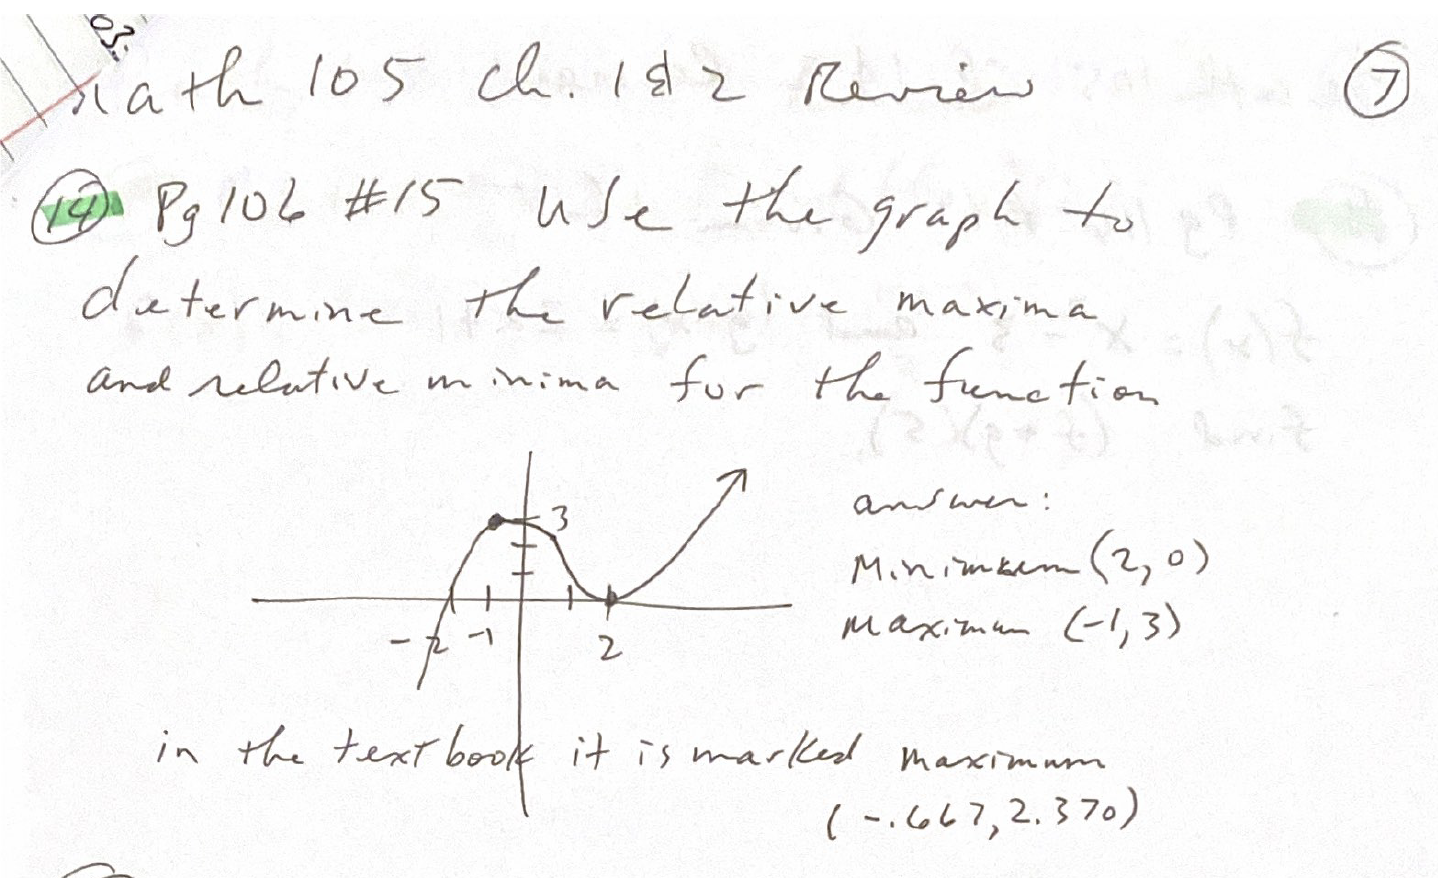 Math 105 Ch. 1 & 2 Review 7
14 Pg 106 #15 Use the graph to
determine the relative maxima
and relative minima for the function
3
answer:
Minimum (2,0)
-2 -1 2
Maximum (-1,3)
in the textbook it is marked maximum
(-.667, 2.370)